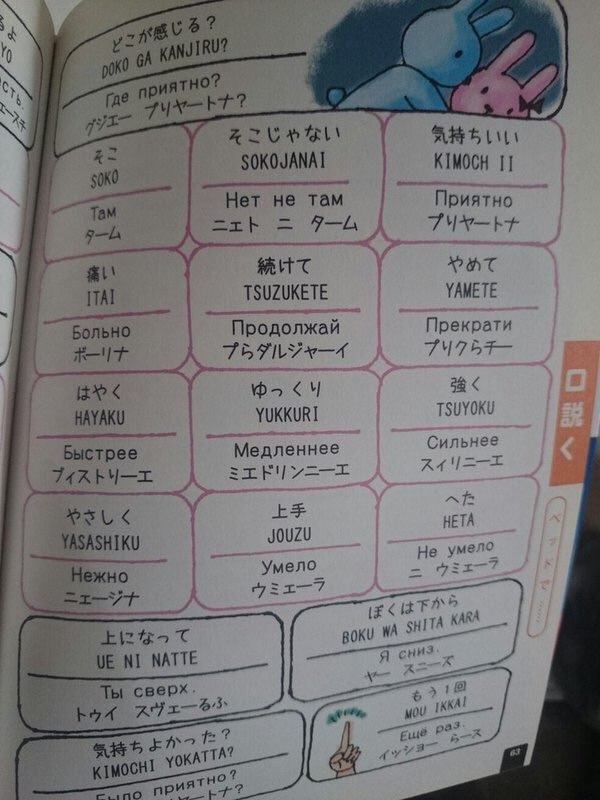 るよ
YO
ость.
ェースチ
どこが感じる？
DOKO GA KANJIRU?
Где приятно?
グジエー プリヤートナ？
そこ
SOKO
Там
ターム
そこじゃない
SOKOJANAI
Нет не там
ニェト ニ ターム
気持ちいい
KIMOCH II
Приятно
プリヤートナ
痛い
ITAI
Больно
ボーリナ
続けて
TSUZUKETE
Продолжай
プらダルジャーイ
やめて
YAMETE
Прекрати
プリクらチー
はやく
HAYAKU
Быстрее
ブィストリーエ
ゆっくり
YUKKURI
Медленнее
ミエドリンニーエ
強く
TSUYOKU
Сильнее
スィリニーエ
やさしく
YASASHIKU
Нежно
ニェージナ
上手
JOUZU
Умело
ウミェーラ
へた
HETA
Не умело
ニ ウミェーラ
上になって
UE NI NATTE
Ты сверх.
トゥイ スヴェーるふ
ぼくは下から
BOKU WA SHITA KARA
Я сниз.
ヤー スニーズ
気持ちよかった？
KIMOCHI YOKATTA?
Было приятно?
もう1回
MOU IKKAI
Ещё раз.
イッショー らース
口説く
63